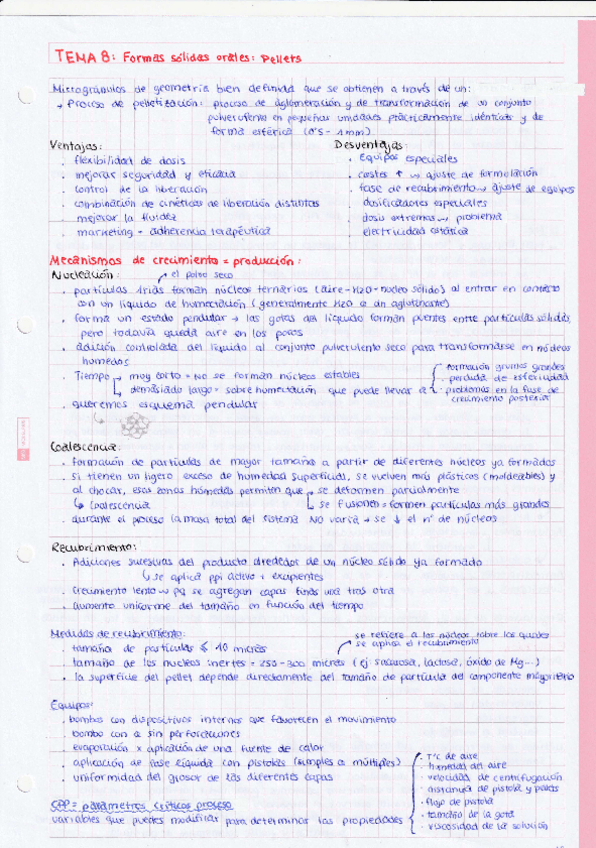 TEMA 8: Formas sólidas orales: Pellets
Microgránulos de geometría bien definida que se obtienen a través de un:
→ Proceso de pelletización: proceso de aglomeración y de transformación de un conjunto
pulverulento en pequeñas unidades prácticamente idénticas y de
forma esférica (0'5 - 1mm)
Ventajas:
· flexibilidad de dosis
· mejorar seguridad y eficacia
· control de la liberación
· combinación de cinéticas de liberación distintas
· mejorar la fluidez
· marketing - adherencia terapéutica
Desventajas:
· Equipos especiales
· costes ↑ → ajuste de formulación
· fase de recubrimiento → ajuste de equipos
· dosificadores especiales
· dosis extremas → problema
· electricidad estática
Mecanismos de crecimiento = producción:
Nucleación:
→ el polvo seco
· partículas 1rias forman núcleos ternarios (aire-H2O-núcleo sólido) al entrar en contacto
con un líquido de humectación (generalmente H2O o un aglutinante)
· forma un estado pendular → las gotas del líquido forman puentes entre partículas sólidas,
pero todavía queda aire en los poros
· adición controlada del líquido al conjunto pulverulento seco para transformarse en núcleos
húmedos
· Tiempo → muy corto = NO se forman núcleos estables
→ demasiado largo = sobrehumectación que puede llevar a
· formación grumos grandes
· perdida de esfericidad
· problemas en la fase de
crecimiento posterior
· queremos esquema pendular
Coalescencia:
· formación de partículas de mayor tamaño a partir de diferentes núcleos ya formados
· Si tienen un ligero exceso de humedad superficial, se vuelven más plásticos (moldeables) y
al chocar, esas zonas húmedas permiten que → se deformen parcialmente
↳ Coalescencia
↳ se fusionen = formen partículas más grandes
· durante el proceso la masa total del sistema NO varía → se ↓ el nº de núcleos
Recubrimiento:
· Adiciones sucesivas del producto alrededor de un núcleo sólido ya formado
↳ se aplica ppi activo + excipientes
· Crecimiento lento → pq se agregan capas finas una tras otra
· aumento uniforme del tamaño en función del tiempo
Medidas de recubrimiento:
se refiere a los núcleos sobre los cuales
se aplica el recubrimiento
· tamaño de partículas ≤ 10 micras
· tamaño de los nucleos inertes = 250-300 micras (ej sacarosa, lactosa, óxido de Mg...)
· la superficie del pellet depende directamente del tamaño de partícula del componente mayoritario
Equipos:
· bombos con dispositivos internos que favorecen el movimiento
· bombo con o sin perforaciones
· evaporación x aplicación de una fuente de calor
· aplicación de fase líquida con pistolas (simples o múltiples)
· uniformidad del grosor de las diferentes capas
CPP = parámetros críticos proceso
variables que puedes modificar para determinar las propiedades
· TªC de aire
· humedad del aire
· velocidad de centrifugación
· distancia de pistola y palas
· flujo de pistola
· tamaño de la gota
· viscosidad de la solución